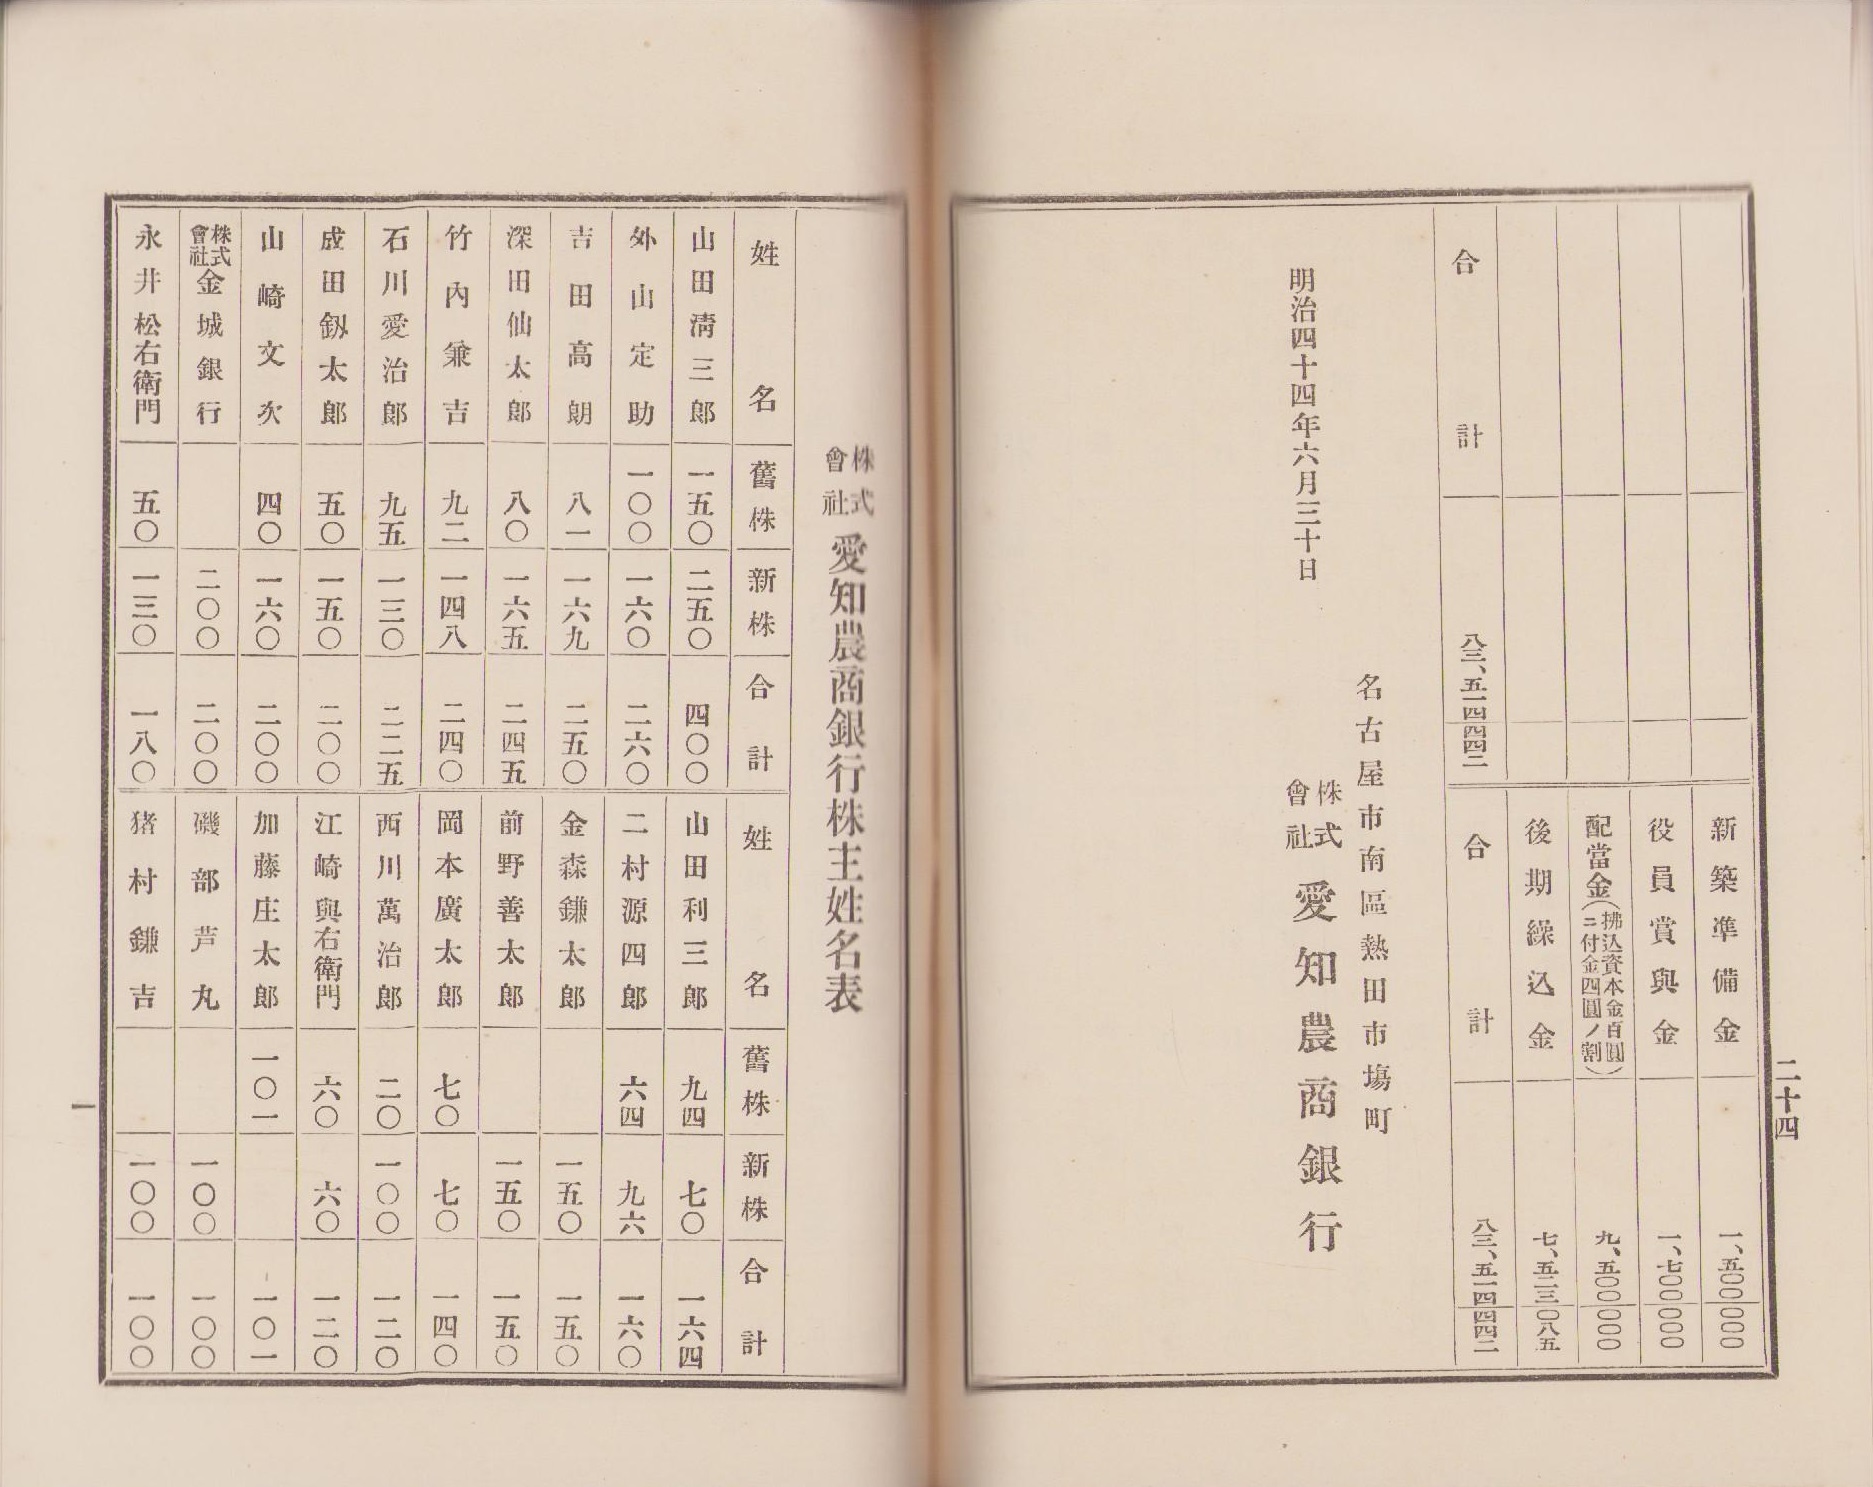 二十四
新築準備金 一、五〇〇〇〇〇
役員賞與金 一、七〇〇〇〇〇
配當金(拂込資本金百圓ニ付金四圓ノ割) 九、五〇〇〇〇〇
後期繰込金 七、五二三〇八五
合計 八三、五一四四四二
合計 八三、五一四四四二
名古屋市南區熱田市場町
明治四十四年六月三十日
株式會社 愛知農商銀行
株式會社 愛知農商銀行株主姓名表
姓名 舊株 新株 合計
山田淸三郎 一五〇 二五〇 四〇〇
外山定助 一〇〇 一六〇 二六〇
吉田高朗 八一 一六九 二五〇
深田仙太郎 八〇 一六五 二四五
竹內兼吉 九二 一四八 二四〇
石川愛治郎 九五 一三〇 二二五
成田釼太郎 五〇 一五〇 二〇〇
山崎文次 四〇 一六〇 二〇〇
株式會社金城銀行 二〇〇 二〇〇
永井松右衛門 五〇 一三〇 一八〇
姓名 舊株 新株 合計
山田利三郎 九四 七〇 一六四
二村源四郎 六四 九六 一六〇
金森鎌太郎 一五〇 一五〇
前野善太郎 一五〇 一五〇
岡本廣太郎 七〇 七〇 一四〇
西川萬治郎 二〇 一〇〇 一二〇
江崎與右衛門 六〇 六〇 一二〇
加藤庄太郎 一〇一 一〇一
磯部芦丸 一〇〇 一〇〇
猪村鎌吉 一〇〇 一〇〇
一